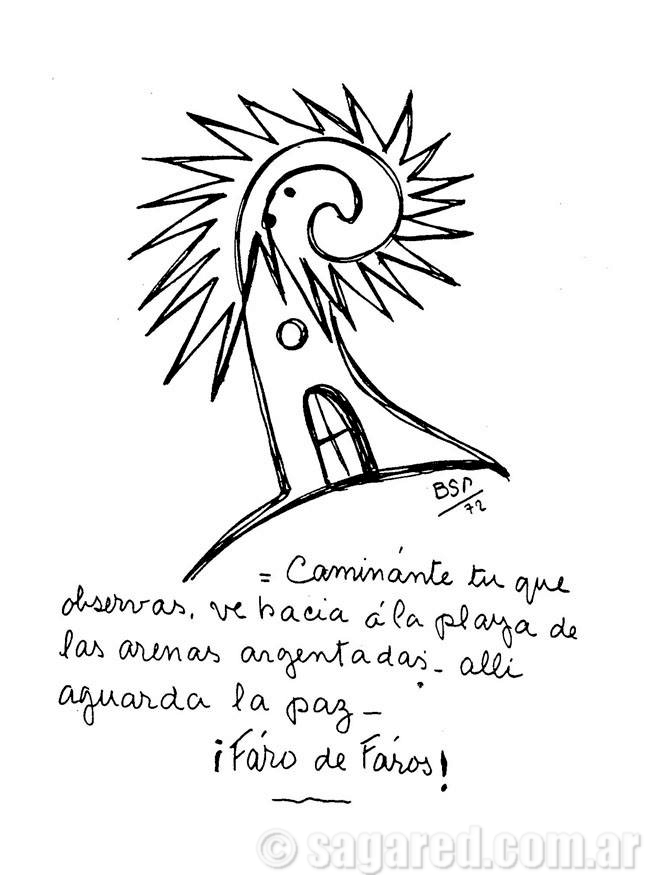 BSP/72
= Caminánte tu que
observas, ve hacia á la playa de
las arenas argentadas - alli
aguarda la paz -
¡Fáro de Fáros!
© sagared.com.ar